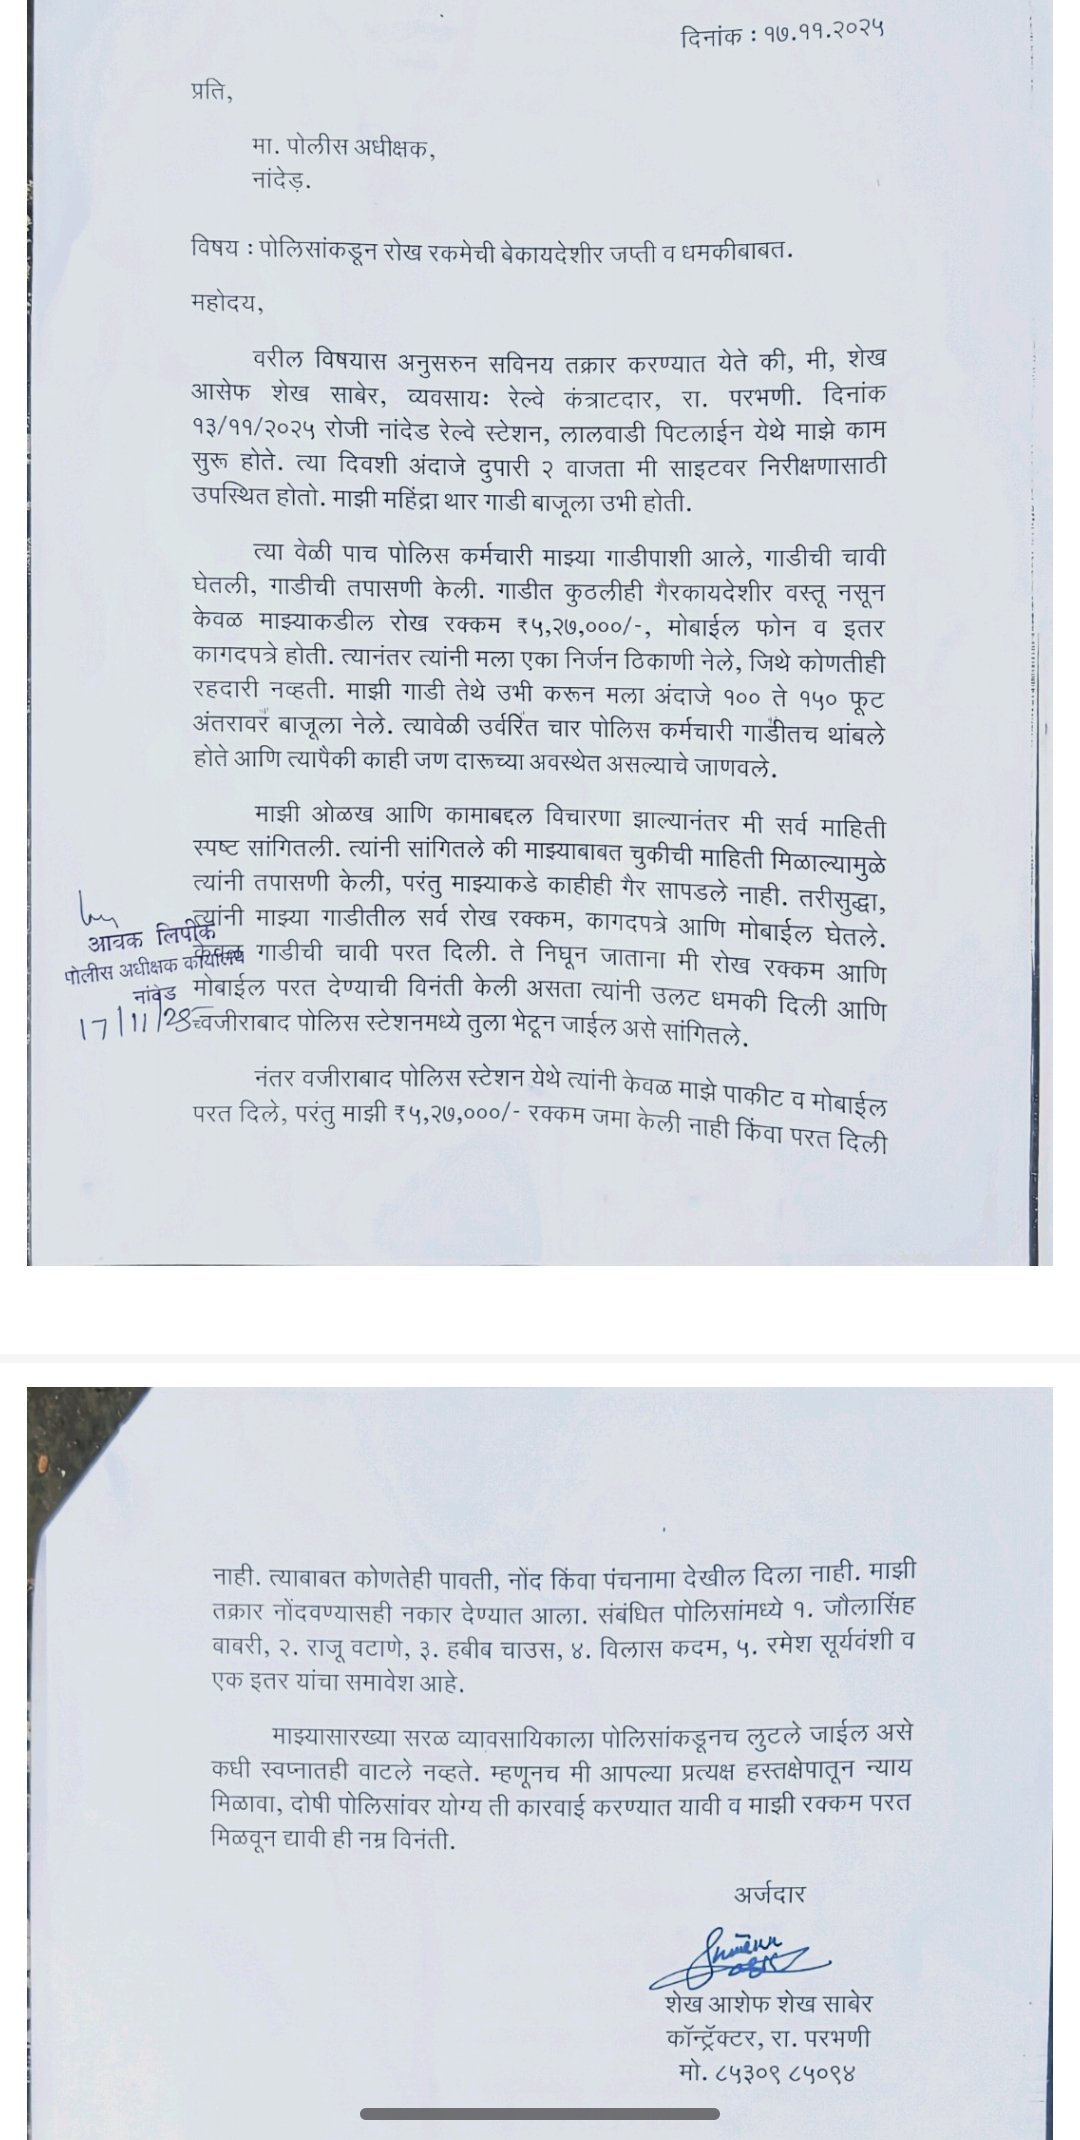 दिनांक : १७.११.२०२५
प्रति,
मा. पोलीस अधीक्षक,
नांदेड़.
विषय : पोलिसांकडून रोख रकमेची बेकायदेशीर जप्ती व धमकीबाबत.
महोदय,
वरील विषयास अनुसरुन सविनय तक्रार करण्यात येते की, मी, शेख
आसेफ शेख साबेर, व्यवसायः रेल्वे कंत्राटदार, रा. परभणी. दिनांक
१३/११/२०२५ रोजी नांदेड रेल्वे स्टेशन, लालवाडी पिटलाईन येथे माझे काम
सुरू होते. त्या दिवशी अंदाजे दुपारी २ वाजता मी साइटवर निरीक्षणासाठी
उपस्थित होतो. माझी महिंद्रा थार गाडी बाजूला उभी होती.
त्या वेळी पाच पोलिस कर्मचारी माझ्या गाडीपाशी आले, गाडीची चावी
घेतली, गाडीची तपासणी केली. गाडीत कुठलीही गैरकायदेशीर वस्तू नसून
केवळ माझ्याकडील रोख रक्कम ₹५,२७,०००/-, मोबाईल फोन व इतर
कागदपत्रे होती. त्यानंतर त्यांनी मला एका निर्जन ठिकाणी नेले, जिथे कोणतीही
रहदारी नव्हती. माझी गाडी तेथे उभी करून मला अंदाजे १०० ते १५० फूट
अंतरावर बाजूला नेले. त्यावेळी उर्वरित चार पोलिस कर्मचारी गाडीतच थांबले
होते आणि त्यापैकी काही जण दारूच्या अवस्थेत असल्याचे जाणवले.
माझी ओळख आणि कामाबद्दल विचारणा झाल्यानंतर मी सर्व माहिती
स्पष्ट सांगितली. त्यांनी सांगितले की माझ्याबाबत चुकीची माहिती मिळाल्यामुळे
त्यांनी तपासणी केली, परंतु माझ्याकडे काहीही गैर सापडले नाही. तरीसुद्धा,
त्यांनी माझ्या गाडीतील सर्व रोख रक्कम, कागदपत्रे आणि मोबाईल घेतले.
केवळ गाडीची चावी परत दिली. ते निघून जाताना मी रोख रक्कम आणि
मोबाईल परत देण्याची विनंती केली असता त्यांनी उलट धमकी दिली आणि
वजीराबाद पोलिस स्टेशनमध्ये तुला भेटून जाईल असे सांगितले.
आवक लिपीक
पोलीस अधीक्षक कार्यालय
नांदेड
17/11/25
नंतर वजीराबाद पोलिस स्टेशन येथे त्यांनी केवळ माझे पाकीट व मोबाईल
परत दिले, परंतु माझी ₹५,२७,०००/- रक्कम जमा केली नाही किंवा परत दिली
नाही. त्याबाबत कोणतेही पावती, नोंद किंवा पंचनामा देखील दिला नाही. माझी
तक्रार नोंदवण्यासही नकार देण्यात आला. संबंधित पोलिसांमध्ये १. जौलासिंह
बाबरी, २. राजू वटाणे, ३. हबीब चाउस, ४. विलास कदम, ५. रमेश सूर्यवंशी व
एक इतर यांचा समावेश आहे.
माझ्यासारख्या सरळ व्यावसायिकाला पोलिसांकडूनच लुटले जाईल असे
कधी स्वप्नातही वाटले नव्हते. म्हणूनच मी आपल्या प्रत्यक्ष हस्तक्षेपातून न्याय
मिळावा, दोषी पोलिसांवर योग्य ती कारवाई करण्यात यावी व माझी रक्कम परत
मिळवून द्यावी ही नम्र विनंती.
अर्जदार
शेख आशेफ शेख साबेर
कॉन्ट्रॅक्टर, रा. परभणी
मो. ८५३०९ ८५०९४